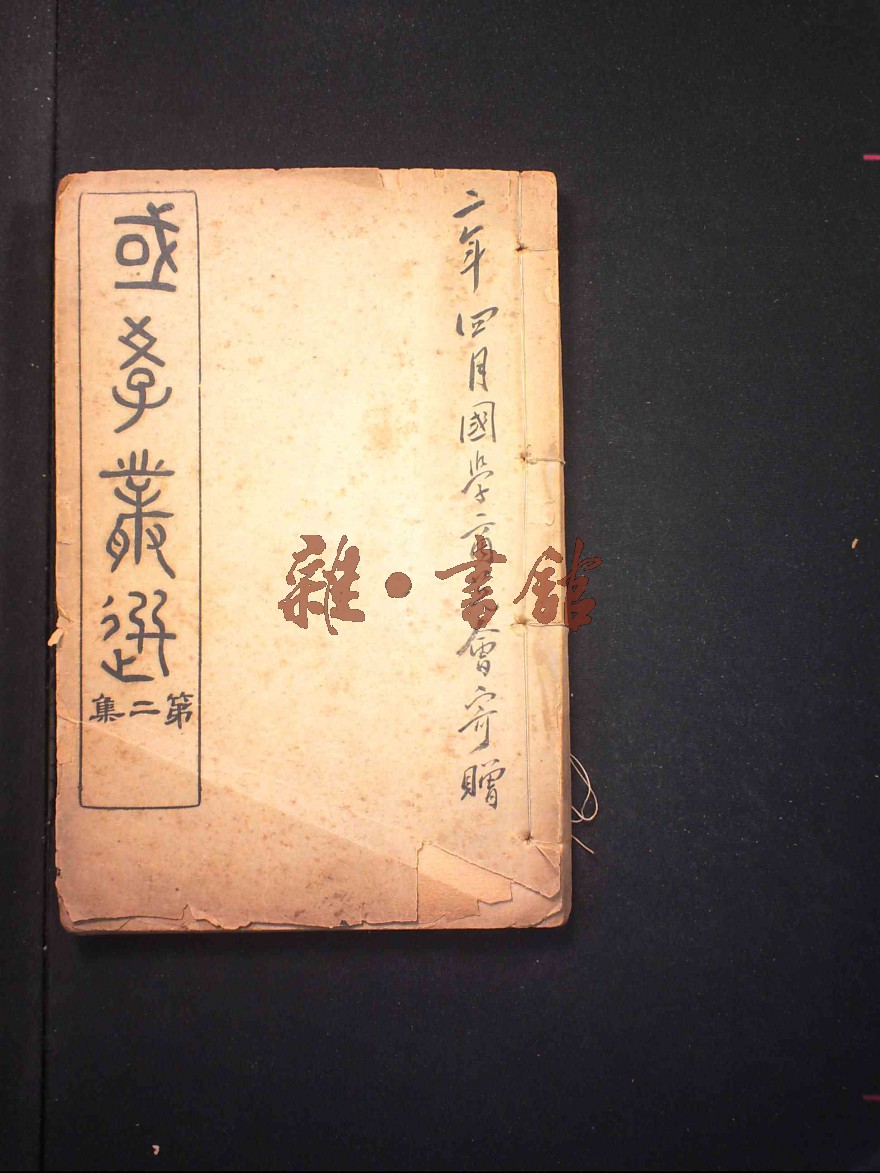 二年四月國學商兌會寄贈
國學叢選
第二集
雜·書館